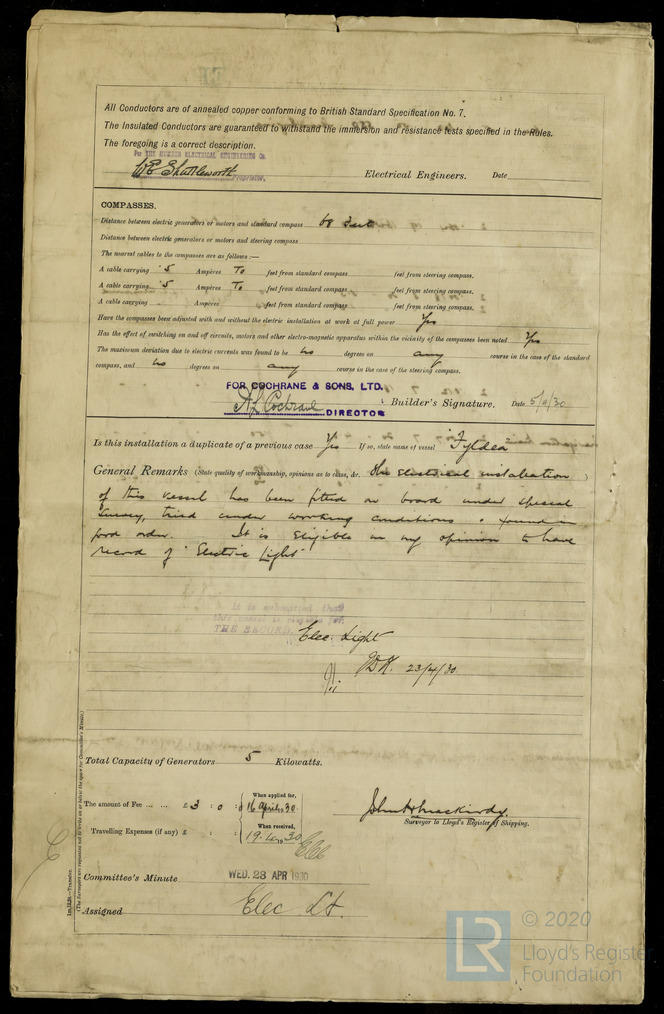 All Conductors are of annealed copper conforming to British Standard Specification No. 7.
The Insulated Conductors are guaranteed to withstand the immersion and resistance tests specified in the Rules.
The foregoing is a correct description.
For THE HUMBER ELECTRICAL ENGINEERING Co.
W E Shuttleworth Proprietor. Electrical Engineers. Date
COMPASSES.
Distance between electric generators or motors and standard compass 68 feet
Distance between electric generators or motors and steering compass
The nearest cables to the compasses are as follows :—
A cable carrying .5 Ampères To feet from standard compass feet from steering compass.
A cable carrying .5 Ampères To feet from standard compass feet from steering compass.
A cable carrying Ampères feet from standard compass feet from steering compass.
Have the compasses been adjusted with and without the electric installation at work at full power Yes
Has the effect of switching on and off circuits, motors and other electro-magnetic apparatus within the vicinity of the compasses been noted Yes
The maximum deviation due to electric currents was found to be no degrees on any course in the case of the standard
compass, and no degrees on any course in the case of the steering compass.
FOR COCHRANE & SONS, LTD.
A L Cochrane DIRECTOR Builder's Signature. Date
Is this installation a duplicate of a previous case Yes If so, state name of vessel "Fyldea"
General Remarks (State quality of workmanship, opinions as to class, &c. The electrical installation
of this vessel has been fitted on board under special
survey, tried under working conditions & found in
good order. It is eligible in my opinion to have
record of "Electric Light"
It is submitted that
this vessel is eligible for
THE RECORD. Elec. Light
23/4/30
Total Capacity of Generators 5 Kilowatts.
The amount of Fee ... ... £ 3 : 0 : 0 When applied for, 16 April 30
Travelling Expenses (if any) £ : : When received, 19.4.30
Surveyor to Lloyd's Register of Shipping.
Committee's Minute WED. 23 APR 1930
Assigned Elec Lt.
1m,12,28—Transfer.
(The Surveyors are requested not to write on or below the space for Committee's Minute.)
LR © 2020
Lloyd's Register
Foundation